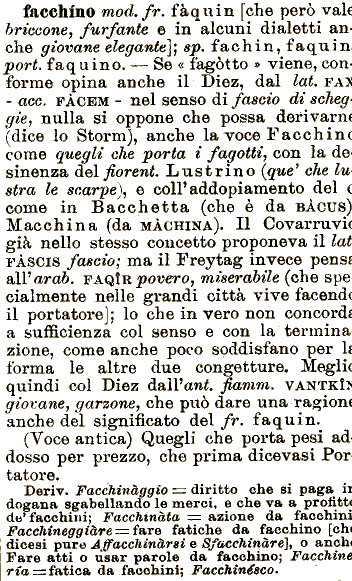 facchíno mod. fr. fàquin [che però vale
briccone, furfante e in alcuni dialetti an-
che giovane elegante]; sp. fachin, faquin
port. faquino. — Se « fagòtto » viene, con-
forme opina anche il Diez, dal lat. FAX
- acc. FÀCEM - nel senso di fascio di scheg-
gie, nulla si oppone che possa derivarne
(dice lo Storm), anche la voce Facchino
come quegli che porta i fagotti, con la de-
sinenza del fiorent. Lustrino (que' che lu-
stra le scarpe), e coll'addopiamento del c
come in Bacchetta (che è da BÀCUS)
Macchina (da MÀCHINA). Il Covarruvic
già nello stesso concetto proponeva il lat
FÀSCIS fascio; ma il Freytag invece pensa
all'arab. FAQÎR povero, miserabile (che spe-
cialmente nelle grandi città vive facendo
il portatore]; lo che in vero non concorda
a sufficienza col senso e con la termina-
zione, come anche poco soddisfano per la
forma le altre due congetture. Meglio
quindi col Diez dall'ant. fiamm. VANTKÌN
giovane, garzone, che può dare una ragione
anche del significato del fr. faquin.
(Voce antica) Quegli che porta pesi ad-
dosso per prezzo, che prima dicevasi Por-
tatore.
Deriv. Facchinàggio = diritto che si paga in
dogana sgabellando le merci, e che va a profitto
de' facchini; Facchinàta = azione da facchini
Facchineggiàre = fare fatiche da facchino [che
dicesi pure Affacchinàrsi e Sfacchinàre], o anche
Fare atti o usar parole da facchino; Facchine
ría = fatica da facchini; Facchinésco.